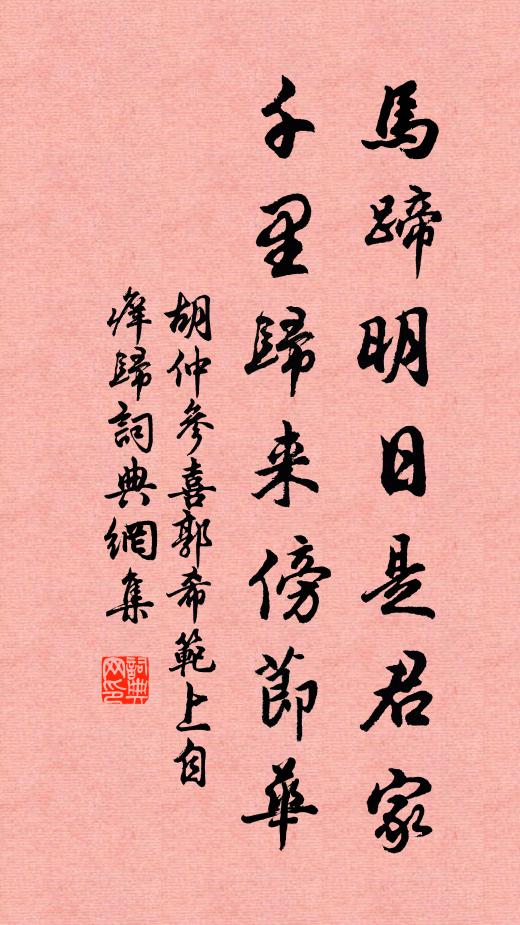 馬蹄明日是君家
千里歸来傍節華
胡仲參喜郭希範上自
癢歸詞典網集
詞典网印